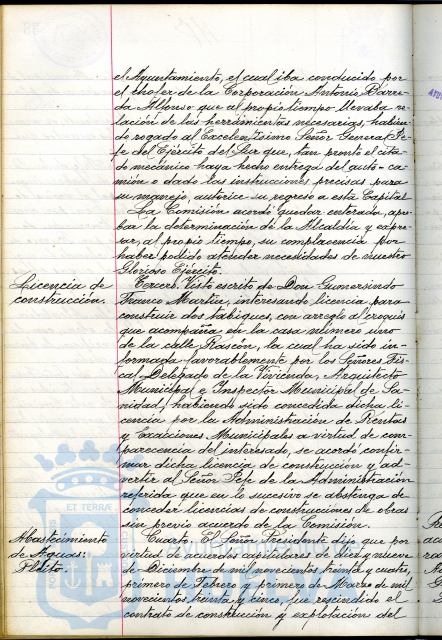 el Ayuntamiento, el cual iba conducido por
el chofer de la Corporación Antonio Barre-
da Alfonso que al propio tiempo llevaba re-
lación de las herramientas necesarias, habien-
do rogado al Excelentísimo Señor General Je-
fe del Ejército del Sur que, tan pronto el cita-
do mecánico haya hecho entrega del auto-ca-
mión o dado las instrucciones precisas para
su manejo, autorice su regreso a esta Capital
La Comisión acordó quedar enterada, apro-
bar la determinación de la Alcaldía y expre-
sar, al propio tiempo, su complacencia por
haber podido atender necesidades de nuestro
Glorioso Ejército.
Licencia de
construcción.
Tercero. Visto escrito de Don Gumersindo
Franco Martín, interesando licencia para
construir dos tabiques, con arreglo al croquis
que acompaña en la casa número uno
de la calle Rascón, la cual ha sido in-
formada favorablemente por los Señores Fis-
cal Delegado de la Vivienda, Arquitecto
Municipal e Inspector Municipal de Sa-
nidad; habiendo sido concedida dicha li-
cencia por la Administración de Rentas
y Exacciones Municipales a virtud de com-
parecencia del interesado, se acordó confir-
mar dicha licencia de construcción y ad-
vertir al Señor Jefe de la Administración
referida que en lo sucesivo se abstenga de
conceder licencias de construcciones de obras
sin previo acuerdo de la Comisión.
Abastecimiento
de Aguas:
Pleito.
Cuarto. El Señor Presidente dijo que por
virtud de acuerdos capitulares de diez y nueve
de Diciembre de mil novecientos treinta y cuatro,
primero de Febrero y primero de Marzo de mil
novecientos treinta y cinco, fue rescindido el
contrato de construcción y explotación del
ET TERRÆ